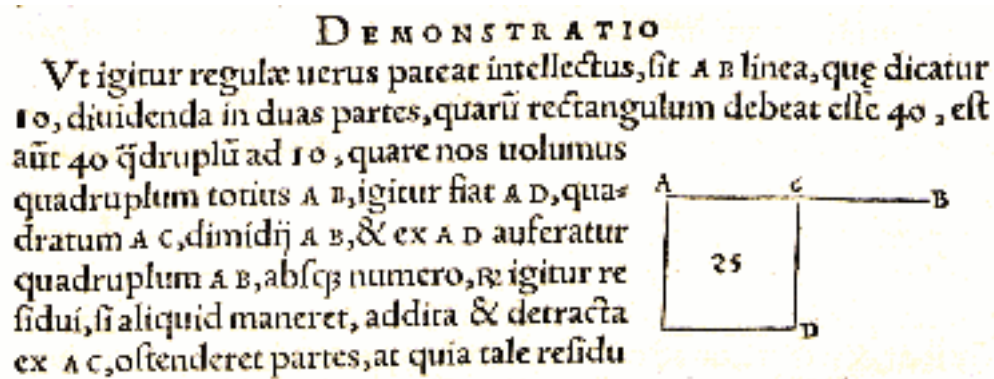 DEMONSTRATIO
Vt igitur regulæ uerus pateat intellectus, ſit A B linea, quę dicatur
10, diuidenda in duas partes, quarū rectangulum debeat eſſe 40, eſt
aūt 40 q̄druplū ad 10, quare nos uolumus
quadruplum totius A B, igitur fiat A D, qua=
dratum A C, dimidij A B, & ex A D auferatur
quadruplum A B, abſqꝫ numero, ℞ igitur re
ſidui, ſi aliquid maneret, addita & detracta
ex A C, oſtenderet partes, at quia tale reſidu
A C B
25
D